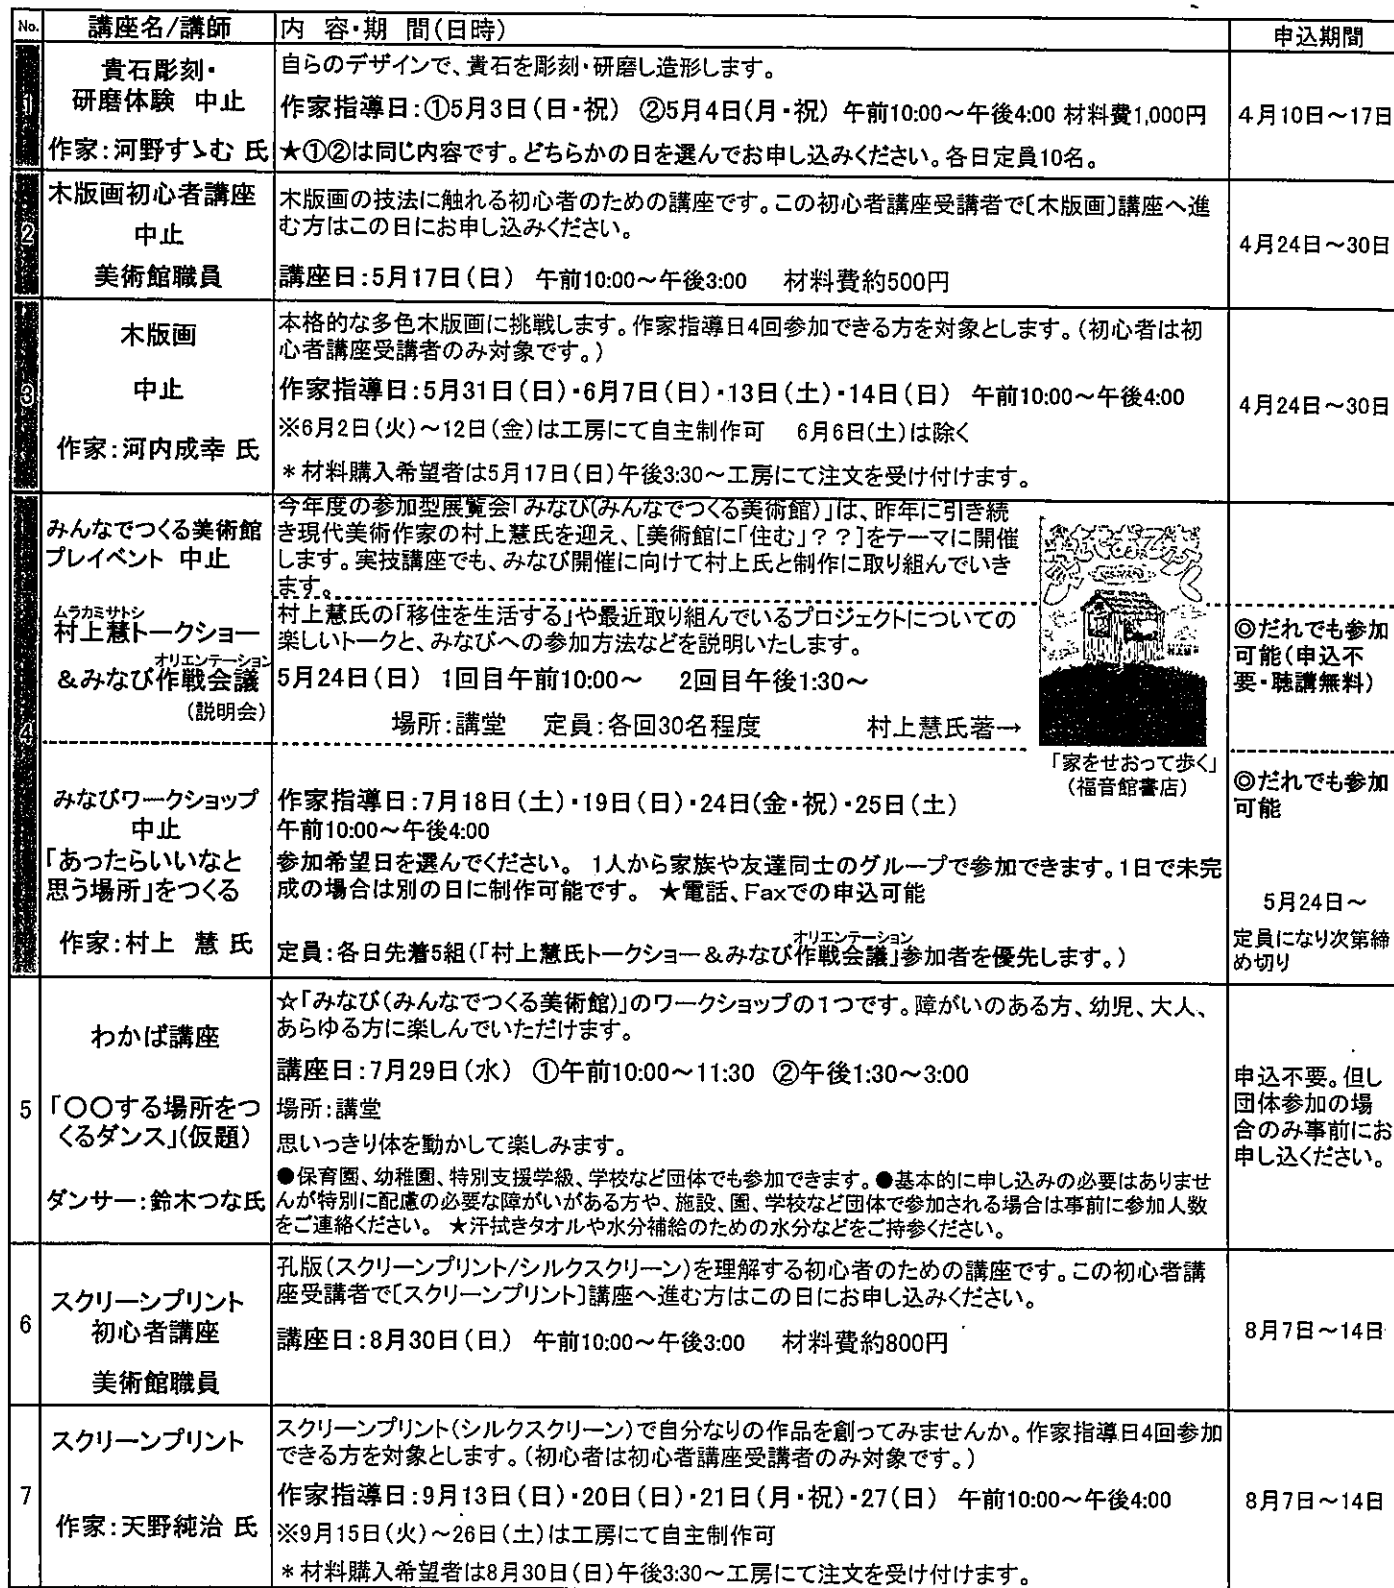 No. 講座名/講師 内 容・期 間(日時) 申込期間
1
貴石彫刻・
研磨体験 中止
作家:河野すゝむ 氏
自らのデザインで、貴石を彫刻・研磨し造形します。
作家指導日:①5月3日(日・祝) ②5月4日(月・祝) 午前10:00～午後4:00 材料費1,000円
★①②は同じ内容です。どちらかの日を選んでお申し込みください。各日定員10名。
4月10日～17日
2
木版画初心者講座
中止
美術館職員
木版画の技法に触れる初心者のための講座です。この初心者講座受講者で〔木版画〕講座へ進
む方はこの日にお申し込みください。
講座日:5月17日(日) 午前10:00～午後3:00 材料費約500円
4月24日～30日
3
木版画
中止
作家:河内成幸 氏
本格的な多色木版画に挑戦します。作家指導日4回参加できる方を対象とします。(初心者は初
心者講座受講者のみ対象です。)
作家指導日:5月31日(日)・6月7日(日)・13日(土)・14日(日) 午前10:00～午後4:00
※6月2日(火)～12日(金)は工房にて自主制作可 6月6日(土)は除く
*材料購入希望者は5月17日(日)午後3:30～工房にて注文を受け付けます。
4月24日～30日
4
みんなでつくる美術館
プレイベント 中止
今年度の参加型展覧会「みなび(みんなでつくる美術館)」は、昨年に引き続
き現代美術作家の村上慧氏を迎え、[美術館に「住む」??]をテーマに開催
します。実技講座でも、みなび開催に向けて村上氏と制作に取り組んでいき
ます。
ムラカミサトシ
村上慧トークショー
オリエンテーション
&みなび作戦会議
(説明会)
村上慧氏の「移住を生活する」や最近取り組んでいるプロジェクトについての
楽しいトークと、みなびへの参加方法などを説明いたします。
5月24日(日) 1回目午前10:00～ 2回目午後1:30～
場所:講堂 定員:各回30名程度 村上慧氏著→
家をせおって歩く
「家をせおって歩く」
(福音館書店)
◎だれでも参加
可能(申込不
要・聴講無料)
みなびワークショップ
中止
「あったらいいなと
思う場所」をつくる
作家:村上 慧 氏
作家指導日:7月18日(土)・19日(日)・24日(金・祝)・25日(土)
午前10:00～午後4:00
参加希望日を選んでください。 1人から家族や友達同士のグループで参加できます。1日で未完
成の場合は別の日に制作可能です。 ★電話、Faxでの申込可能
オリエンテーション
定員:各日先着5組(「村上慧氏トークショー&みなび作戦会議」参加者を優先します。)
◎だれでも参加
可能
5月24日～
定員になり次第締
め切り
5
わかば講座
「〇〇する場所をつ
くるダンス」(仮題)
ダンサー:鈴木つな氏
☆「みなび(みんなでつくる美術館)」のワークショップの1つです。障がいのある方、幼児、大人、
あらゆる方に楽しんでいただけます。
講座日:7月29日(水) ①午前10:00～11:30 ②午後1:30～3:00
場所:講堂
思いっきり体を動かして楽しみます。
●保育園、幼稚園、特別支援学級、学校など団体でも参加できます。●基本的に申し込みの必要はありませ
んが特別に配慮の必要な障がいがある方や、施設、園、学校など団体で参加される場合は事前に参加人数
をご連絡ください。 ★汗拭きタオルや水分補給のための水分などをご持参ください。
申込不要。但し
団体参加の場
合のみ事前にお
申し込ください。
6
スクリーンプリント
初心者講座
美術館職員
孔版(スクリーンプリント/シルクスクリーン)を理解する初心者のための講座です。この初心者講
座受講者で〔スクリーンプリント〕講座へ進む方はこの日にお申し込みください。
講座日:8月30日(日) 午前10:00～午後3:00 材料費約800円
8月7日～14日
7
スクリーンプリント
作家:天野純治 氏
スクリーンプリント(シルクスクリーン)で自分なりの作品を創ってみませんか。作家指導日4回参加
できる方を対象とします。(初心者は初心者講座受講者のみ対象です。)
作家指導日:9月13日(日)・20日(日)・21日(月・祝)・27(日) 午前10:00～午後4:00
※9月15日(火)～26日(土)は工房にて自主制作可
*材料購入希望者は8月30日(日)午後3:30～工房にて注文を受け付けます。
8月7日～14日